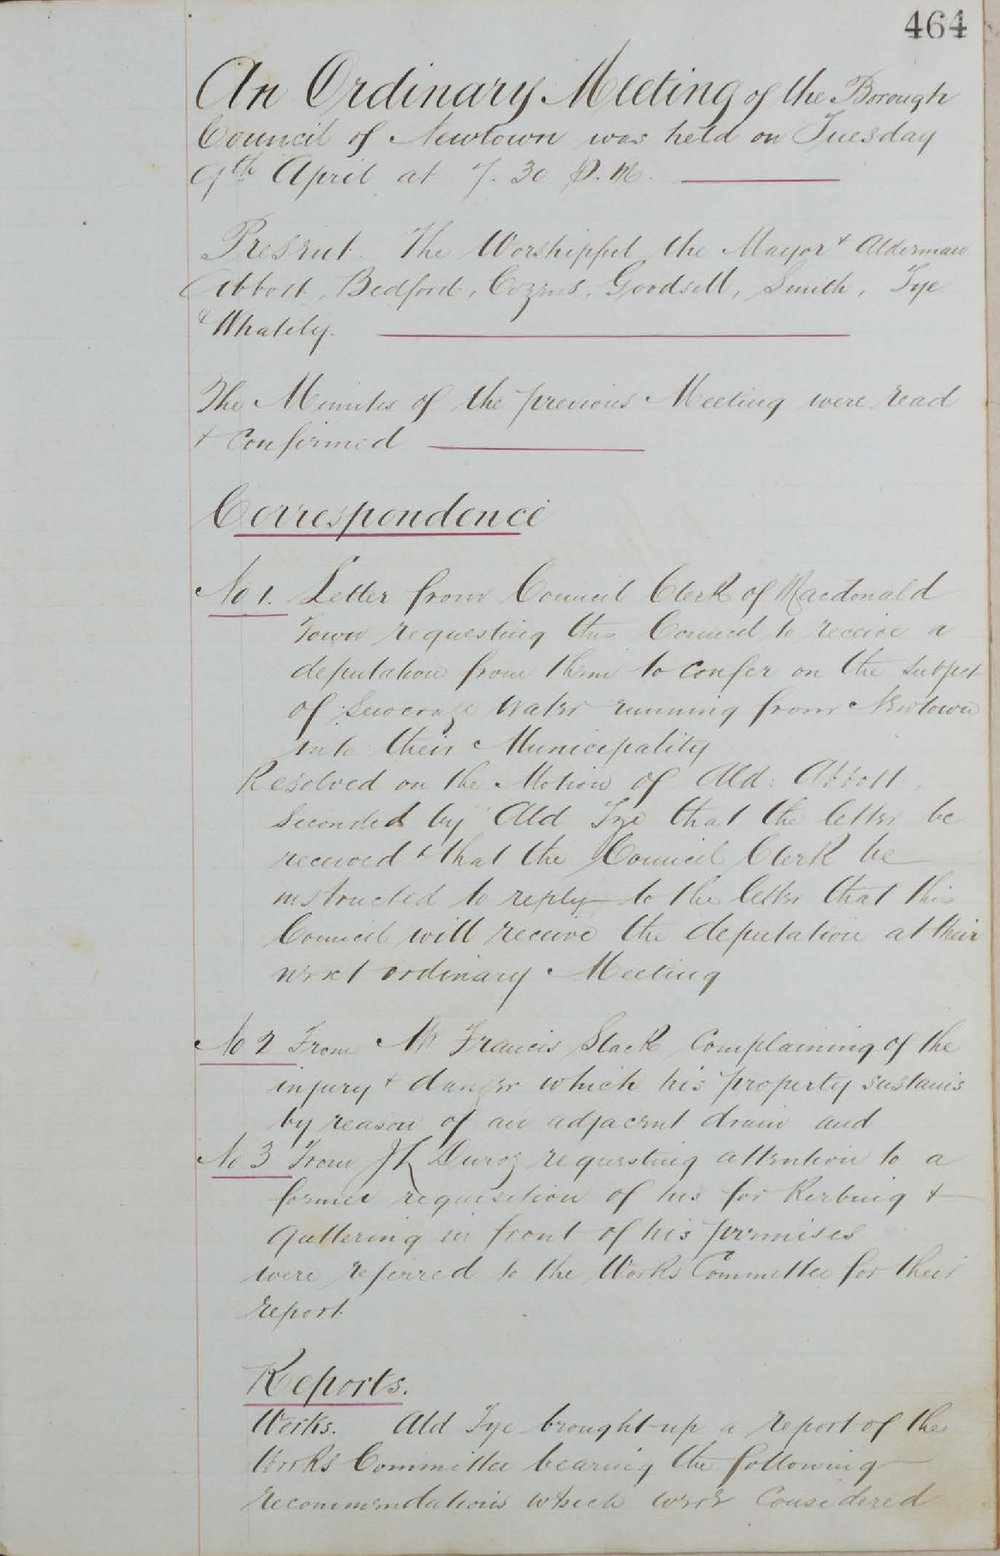 464
An Ordinary Meeting of the Borough
Council of Newtown was held on Tuesday
9th April at 7.30 P.M.
Present. The Worshipful the Mayor & Aldermen
Abbott, Bedford, Cozens, Goodsell, Smith, Tye
& Whately.
The Minutes of the previous Meeting were read
& confirmed
Correspondence
No 1. Letter from Council Clerk of Macdonald
Town requesting this Council to receive a
deputation from them to confer on the subject
of sewerage water running from Newtown
into their Municipality
Resolved on the Motion of Ald: Abbott,
seconded by Ald Tye that the letter be
received & that the Council Clerk be
instructed to reply to the letter that this
Council will receive the deputation at their
next ordinary Meeting
No 2 From Mr Francis Slack Complaining of the
injury & danger which his property sustains
by reason of an adjacent drain and
No 3 From Duroz requesting attention to a
former requisition of his for Kerbing &
guttering in front of his premises
were referred to the Works Committee for their
report.
Reports.
Works. Ald Tye brought up a report of the
Works Committee bearing the following
recommendations which were considered